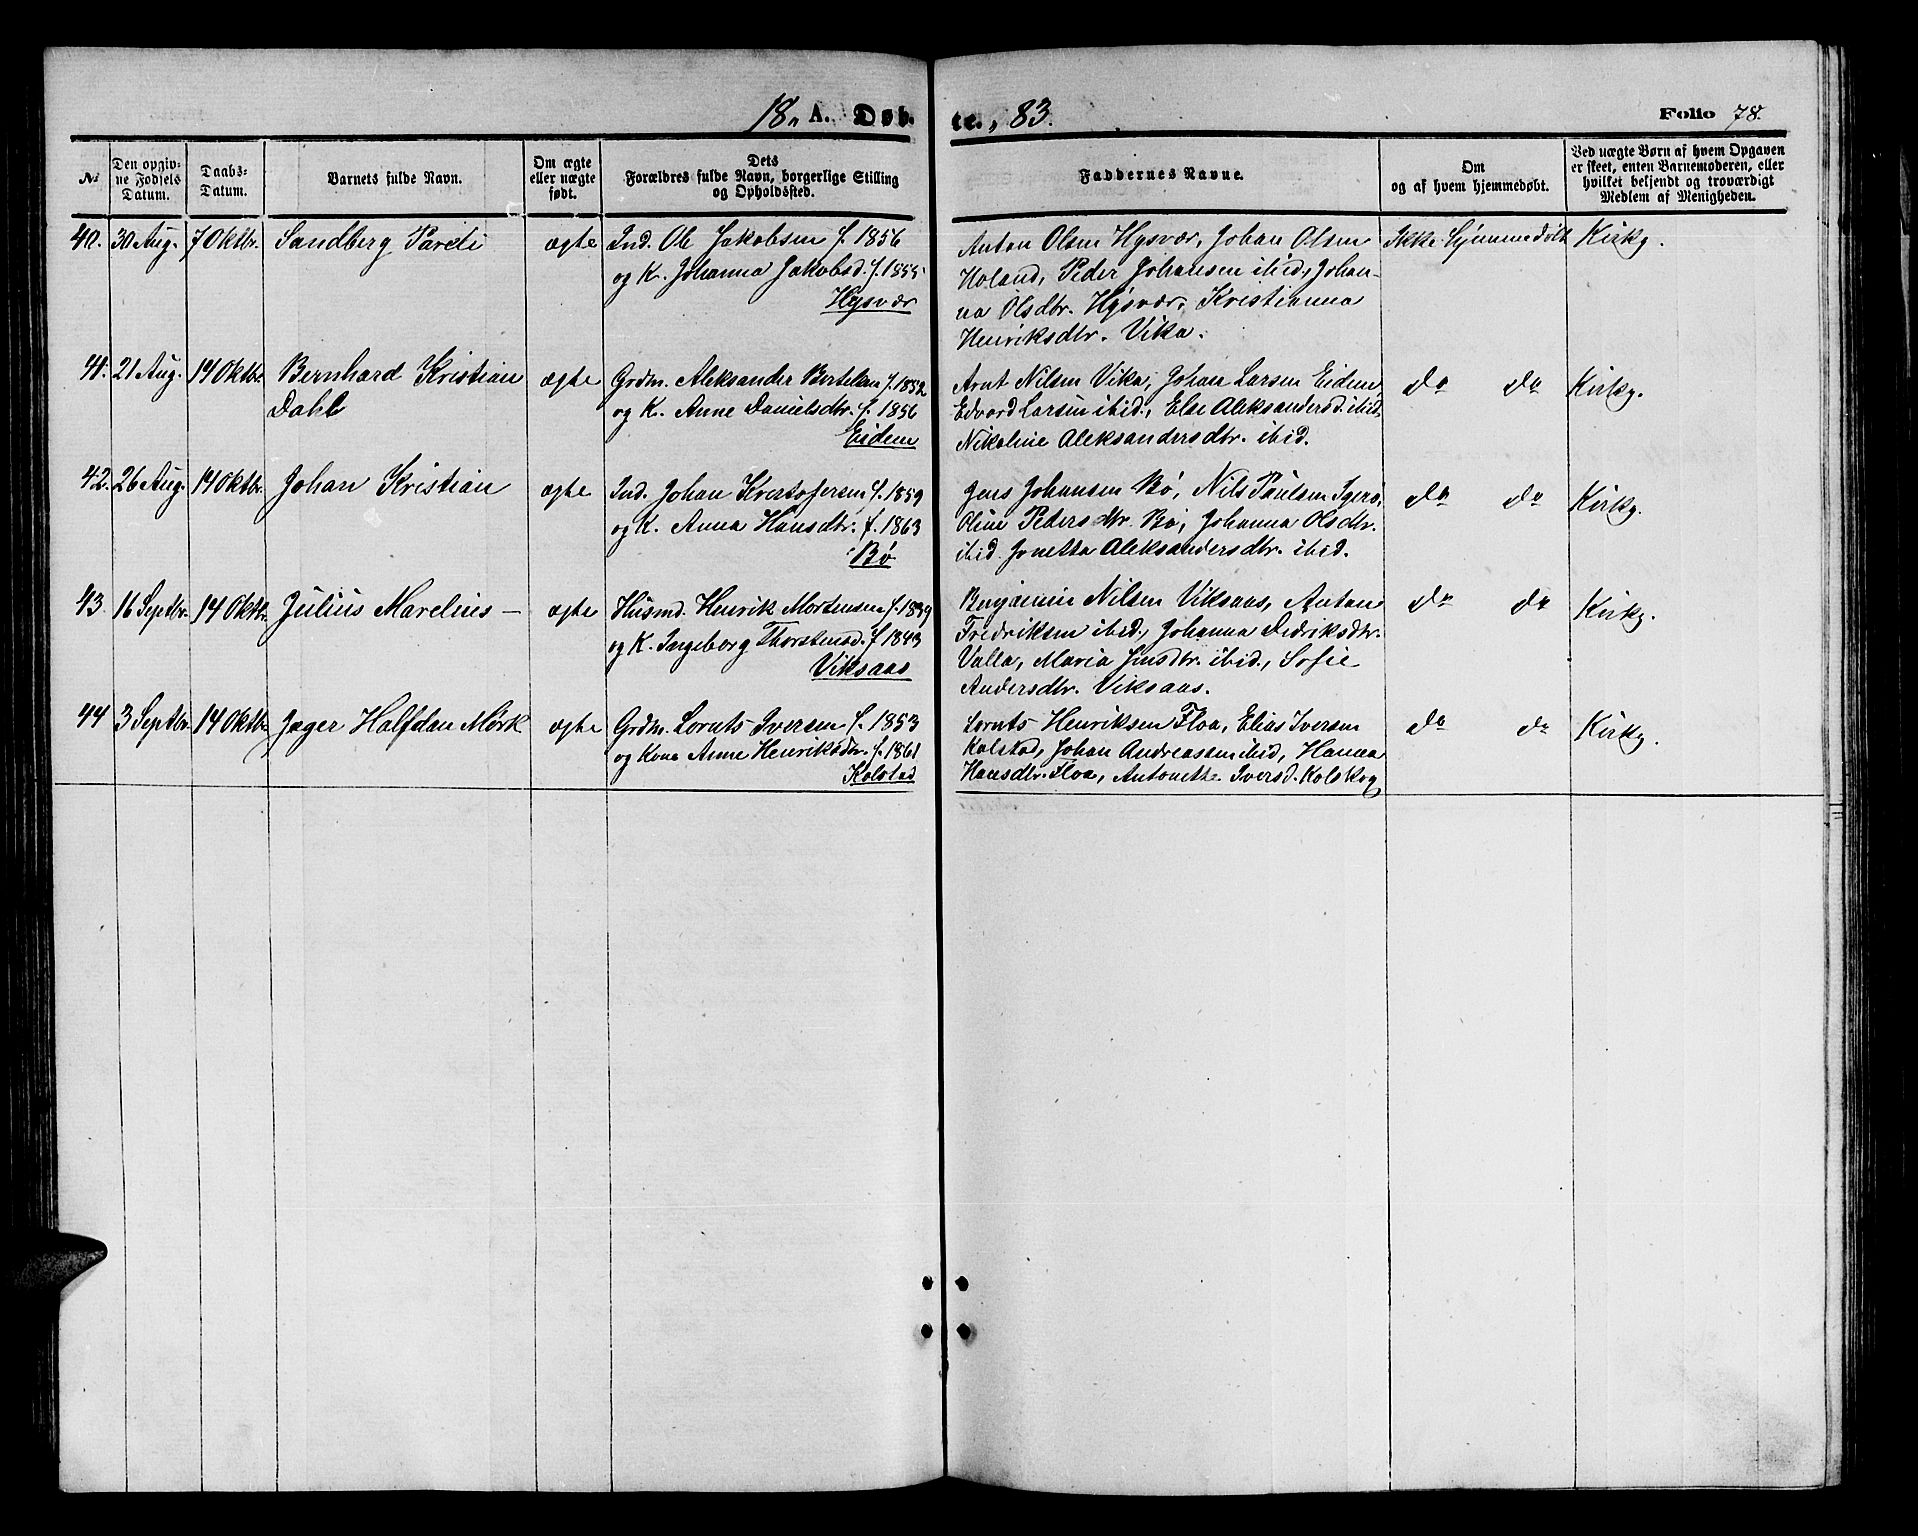 18 A. Døb- te, 83. Folio 78.
No
Den opgiv-
ne Fødsels
Datum.
Daabs-
Datum.
Barnets fulde Navn.
Om ægte
eller uægte
født.
Dets
Forældres fulde Navn, borgerlige Stilling
og Opholdssted.
Faddernes Navne.
Om
og af hvem hjemmedøbt.
Ved uægte Børn af hvem Opgaven
er skeet, enten Barnemoderen, eller
hvilket bekjendt og troværdigt
Medlem af Menigheden.
40. 30 Aug. 7 Oktbr. Sandberg Pareli ægte Ind. Ole Jakobsen f. 1856
og K. Johanna Jakobsd. f. 1855
Hysvær
Anton Olsen Hysvær, Johan Olsen
Holand, Peder Johansen ibid, Johan-
na Olsdtr. Hysvær, Kristianna
Henriksdtr. Vika.
Ikke hjemmedøbt Kirkg.
41. 21 Aug. 14 Oktbr. Bernhard Kristian
Dahl
ægte Grdm. Aleksander Bertelsen f. 1852
og K. Anne Danielsdtr. f. 1856
Eidem
Arnt Nilsen Vika, Johan Larsen Eidem,
Edvard Larsen ibid., Else Aleksandersd. ibid.
Nikoline Aleksandersdtr. ibid.
do do Kirkg.
42. 26 Aug. 14 Oktbr. Johan Kristian ægte Ind. Johan Kristofersen f. 1859
og K. Anna Hansdtr. f. 1863
Bø
Jens Johansen Bø, Nils Paulsen Igerø,
Oline Pedersdtr. Bø, Johanna Olsdtr.
ibid. Jonetta Aleksandersdtr. ibid.
do do Kirkg.
43. 16 Septbr. 14 Oktbr. Julius Marelius — ægte Husmd. Henrik Mortensen f. 1839
og K. Ingeborg Thorstensd. f. 1843
Viksaas
Benjamin Nilsen Viksaas, Anton
Fredriksen ibid., Johanna Didriksdtr.
Valla, Maria Jensdtr. ibid., Sofie
Andersdtr. Viksaas.
do do Kirkg.
44 3 Septbr. 14 Oktbr. Jæger Halfdan Mørk ægte Grdm. Lornts Iversen f. 1853
og Kone Anne Henriksdtr. f. 1861
Kolstad
Lornts Henriksen Floa, Elias Iversen
Kolstad, Johan Andreassen ibid, Hanna
Hansdtr. Floa, Antonette Iversd. Kolskog
do do Kirkg.